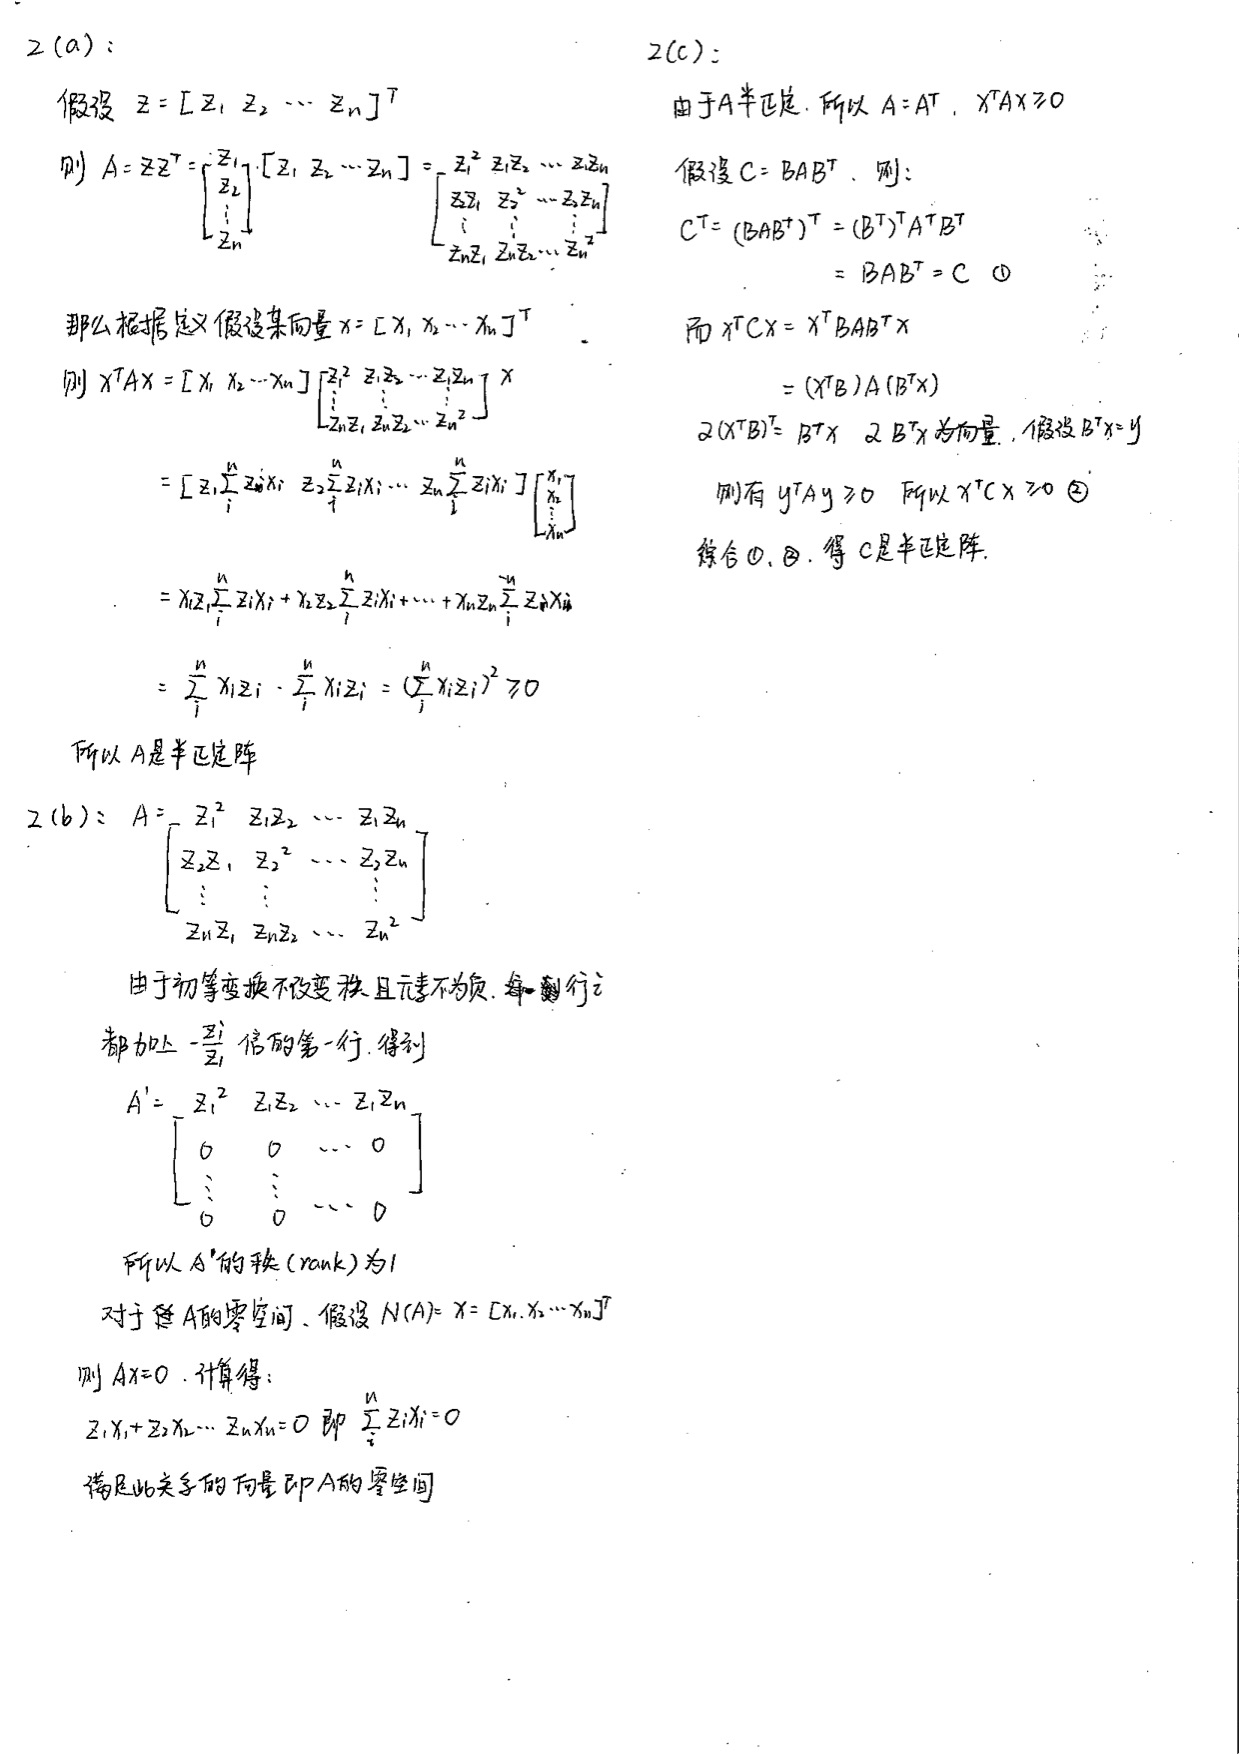 2(a):
假设 z = [z₁ z₂ ⋯ zₙ]ᵀ
则 A = zzᵀ = [z₁ z₂ ⋮ zₙ]·[z₁ z₂ ⋯ zₙ] = [z₁² z₁z₂ ⋯ z₁zₙ
z₂z₁ z₂² ⋯ z₂zₙ
⋮ ⋮ ⋮
zₙz₁ zₙz₂ ⋯ zₙ²]
那么根据定义假设某向量 x = [x₁ x₂ ⋯ xₙ]ᵀ
则 xᵀAx = [x₁ x₂ ⋯ xₙ] [z₁² z₁z₂ ⋯ z₁zₙ
⋮ ⋮ ⋮
zₙz₁ zₙz₂ ⋯ zₙ²] x
= [z₁∑ᵢⁿzᵢxᵢ z₂∑ᵢⁿzᵢxᵢ ⋯ zₙ∑ᵢⁿzᵢxᵢ] [x₁ x₂ ⋮ xₙ]
= x₁z₁∑ᵢⁿzᵢxᵢ + x₂z₂∑ᵢⁿzᵢxᵢ + ⋯ + xₙzₙ∑ᵢⁿzᵢxᵢ
= ∑ᵢⁿxᵢzᵢ · ∑ᵢⁿxᵢzᵢ = (∑ᵢⁿxᵢzᵢ)² ≥ 0
所以 A是半正定阵
2(b): A = [z₁² z₁z₂ ⋯ z₁zₙ
z₂z₁ z₂² ⋯ z₂zₙ
⋮ ⋮ ⋮
zₙz₁ zₙz₂ ⋯ zₙ²]
由于初等变换不改变秩且元素不为负. 行i
都加上 -zᵢ/z₁ 倍的第一行.得到
A' = [z₁² z₁z₂ ⋯ z₁zₙ
0 0 ⋯ 0
⋮ ⋮
0 0 ⋯ 0]
所以 A'的秩(rank)为1
对于 A的零空间、假设 N(A) = x = [x₁.x₂⋯xₙ]ᵀ
则 Ax=0 . 计算得:
z₁x₁+z₂x₂⋯ zₙxₙ=0 即 ∑ᵢⁿzᵢxᵢ=0
满足此关系的向量即A的零空间
2(c):
由于A半正定. 所以 A=Aᵀ, xᵀAx≥0
假设 C= BABᵀ、则:
Cᵀ= (BABᵀ)ᵀ = (Bᵀ)ᵀAᵀBᵀ
= BABᵀ = C ①
而 xᵀCx = xᵀBABᵀx
= (xᵀB)A(Bᵀx)
又(xᵀB)ᵀ= Bᵀx 又 Bᵀx 为向量, 假设Bᵀx=y
则有 yᵀAy ≥0 所以 xᵀCx ≥0 ②
综合①、②. 得 C是半正定阵.